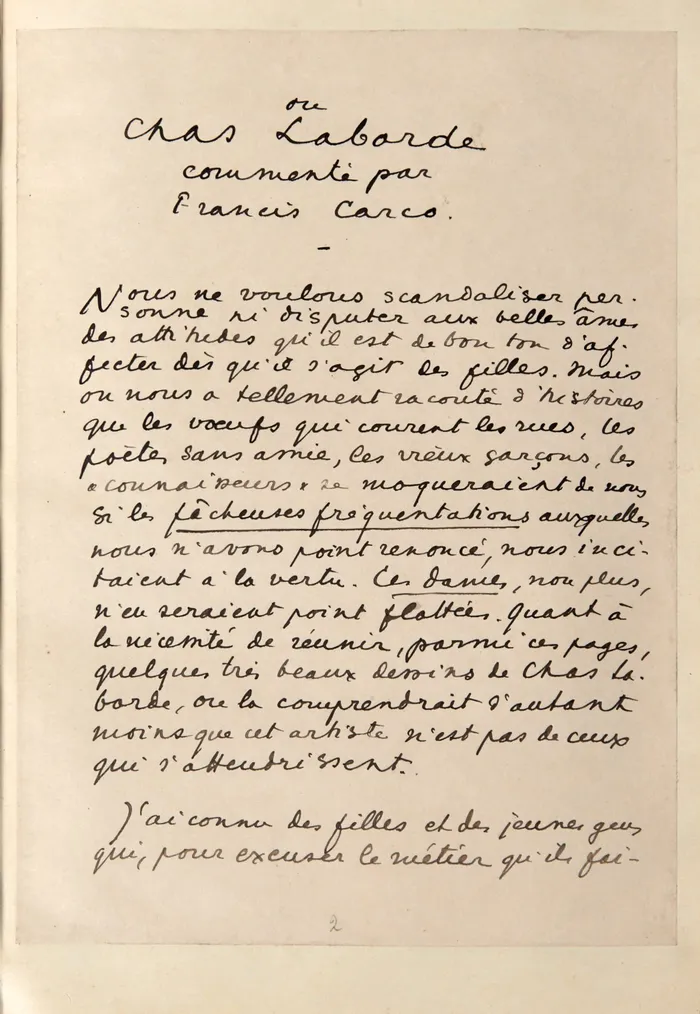 ou
Chas Laborde
commenté par
Francis Carco.
-
Nous ne voulons scandaliser per-
sonne ni disputer aux belles âmes
des attitudes qu'il est de bon ton d'af-
fecter dès qu'il s'agit des filles. Mais
on nous a tellement raconté d'histoires
que les vœufs qui courent les rues, les
poètes sans amie, les vieux garçons, les
"connaisseurs" se moqueraient de nous
si les fâcheuses fréquentations auxquelles
nous n'avons point renoncé, nous inci-
taient à la vertu. Ces dames, non plus,
n'en seraient point flattées. Quant à
la nécessité de réunir, parmi ces pages,
quelques très beaux dessins de Chas La-
borde, on la comprendrait d'autant
moins que cet artiste n'est pas de ceux
qui s'attendrissent.
J'ai connu des filles et des jeunes gens
qui, pour excuser le métier qu'ils fai-
2